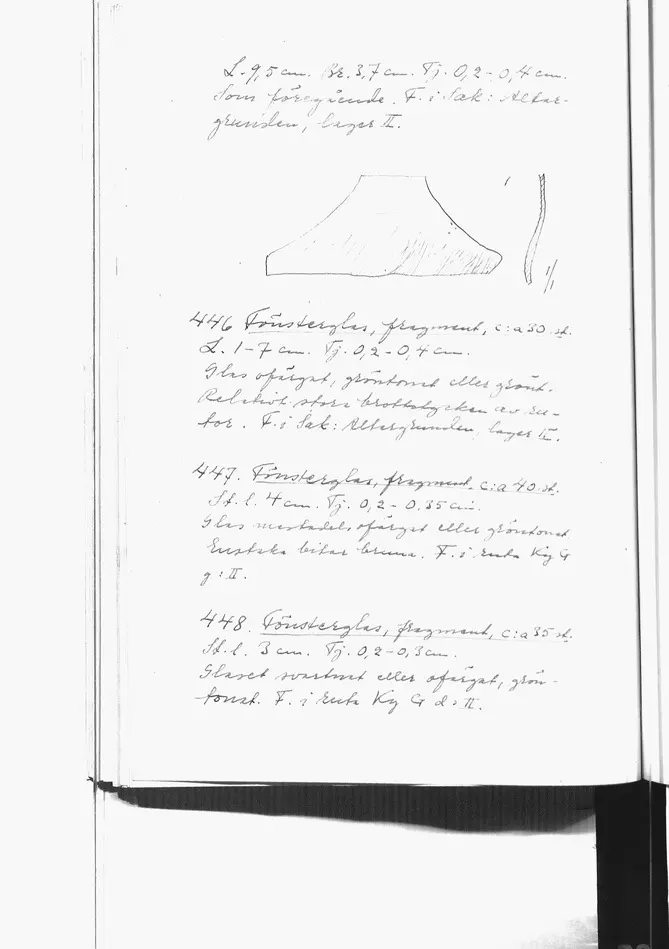 L. 9,5 cm. Br. 3,7 cm. Tj. 0,2-0,4 cm.
Som föregående. F. i Sak: Altar-
grunden, lager II.
1/1
446 Fönsterglas, fragment, c:a 30 st.
L. 1-7 cm. Tj. 0,2-0,4 cm.
Glas ofärgat, gröntonat eller grönt.
Relativt stora brottstycken av ru-
tor. F. i Sak: Altargrunden, lager II.
447. Fönsterglas, fragment, c:a 40 st.
St. l. 4 cm. Tj. 0,2-0,35 cm.
Glas mestadels ofärgat eller gröntonat
Enstaka bitar bruna. F. i ruta Ky G
g: II.
448. Fönsterglas, fragment, c:a 35 st.
St. l. 3 cm. Tj. 0,2-0,3 cm.
Glaset svartnat eller ofärgat, grön-
tonat. F. i ruta Ky G d: II.